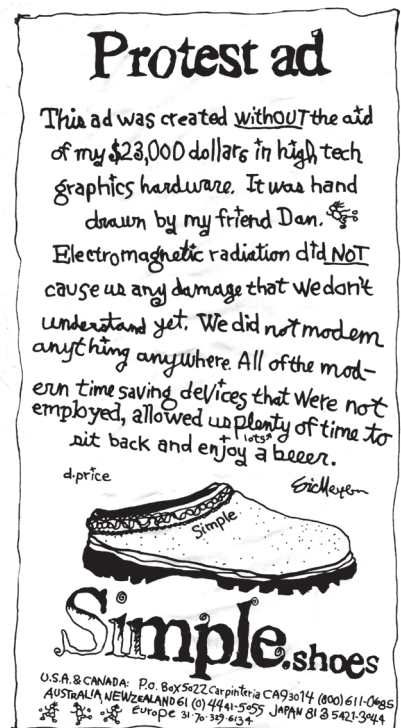 Protest ad
This ad was created without the aid
of my $23,000 dollars in high tech
graphics hardware. It was hand
drawn by my friend Dan.
Electromagnetic radiation did NOT
cause us any damage that we don't
understand yet. We did not modem
anything anywhere. All of the mod-
ern time saving devices that were not
employed, allowed us plenty of time to
lots^
sit back and enjoy a beeer.
d.price
Eric Meyer
Simple
Simple.shoes
U.S.A. & CANADA: P.O. Box 5022 Carpinteria CA 93014 (800) 611-0685
AUSTRALIA, NEW ZEALAND 61 (0) 44 41-5055 JAPAN 81 3 5421-3944
Europe 31·70·329-6134